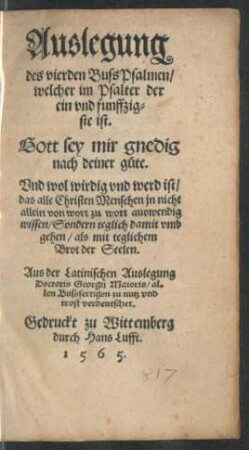 Auslegung
des vierden BußPsalmen/
welcher im Psalter der
ein vnd funffzig-
ste ist.
Gott sey mir gnedig
nach deiner güte.
Vnd wol wirdig vnd werd ist/
das alle Christen Menschen jn nicht
allein von wort zu wort auswendig
wissen/Sondern teglich damit vmb
gehen/als mit teglichem
Brot der Seelen.
Aus der Latinischen Auslegung
Doctoris Georgij Maioris/al-
len Bußfertigen zu nutz vnd
trost verdeutschet.
Gedruckt zu Wittemberg
durch Hans Lufft.
1565.
817